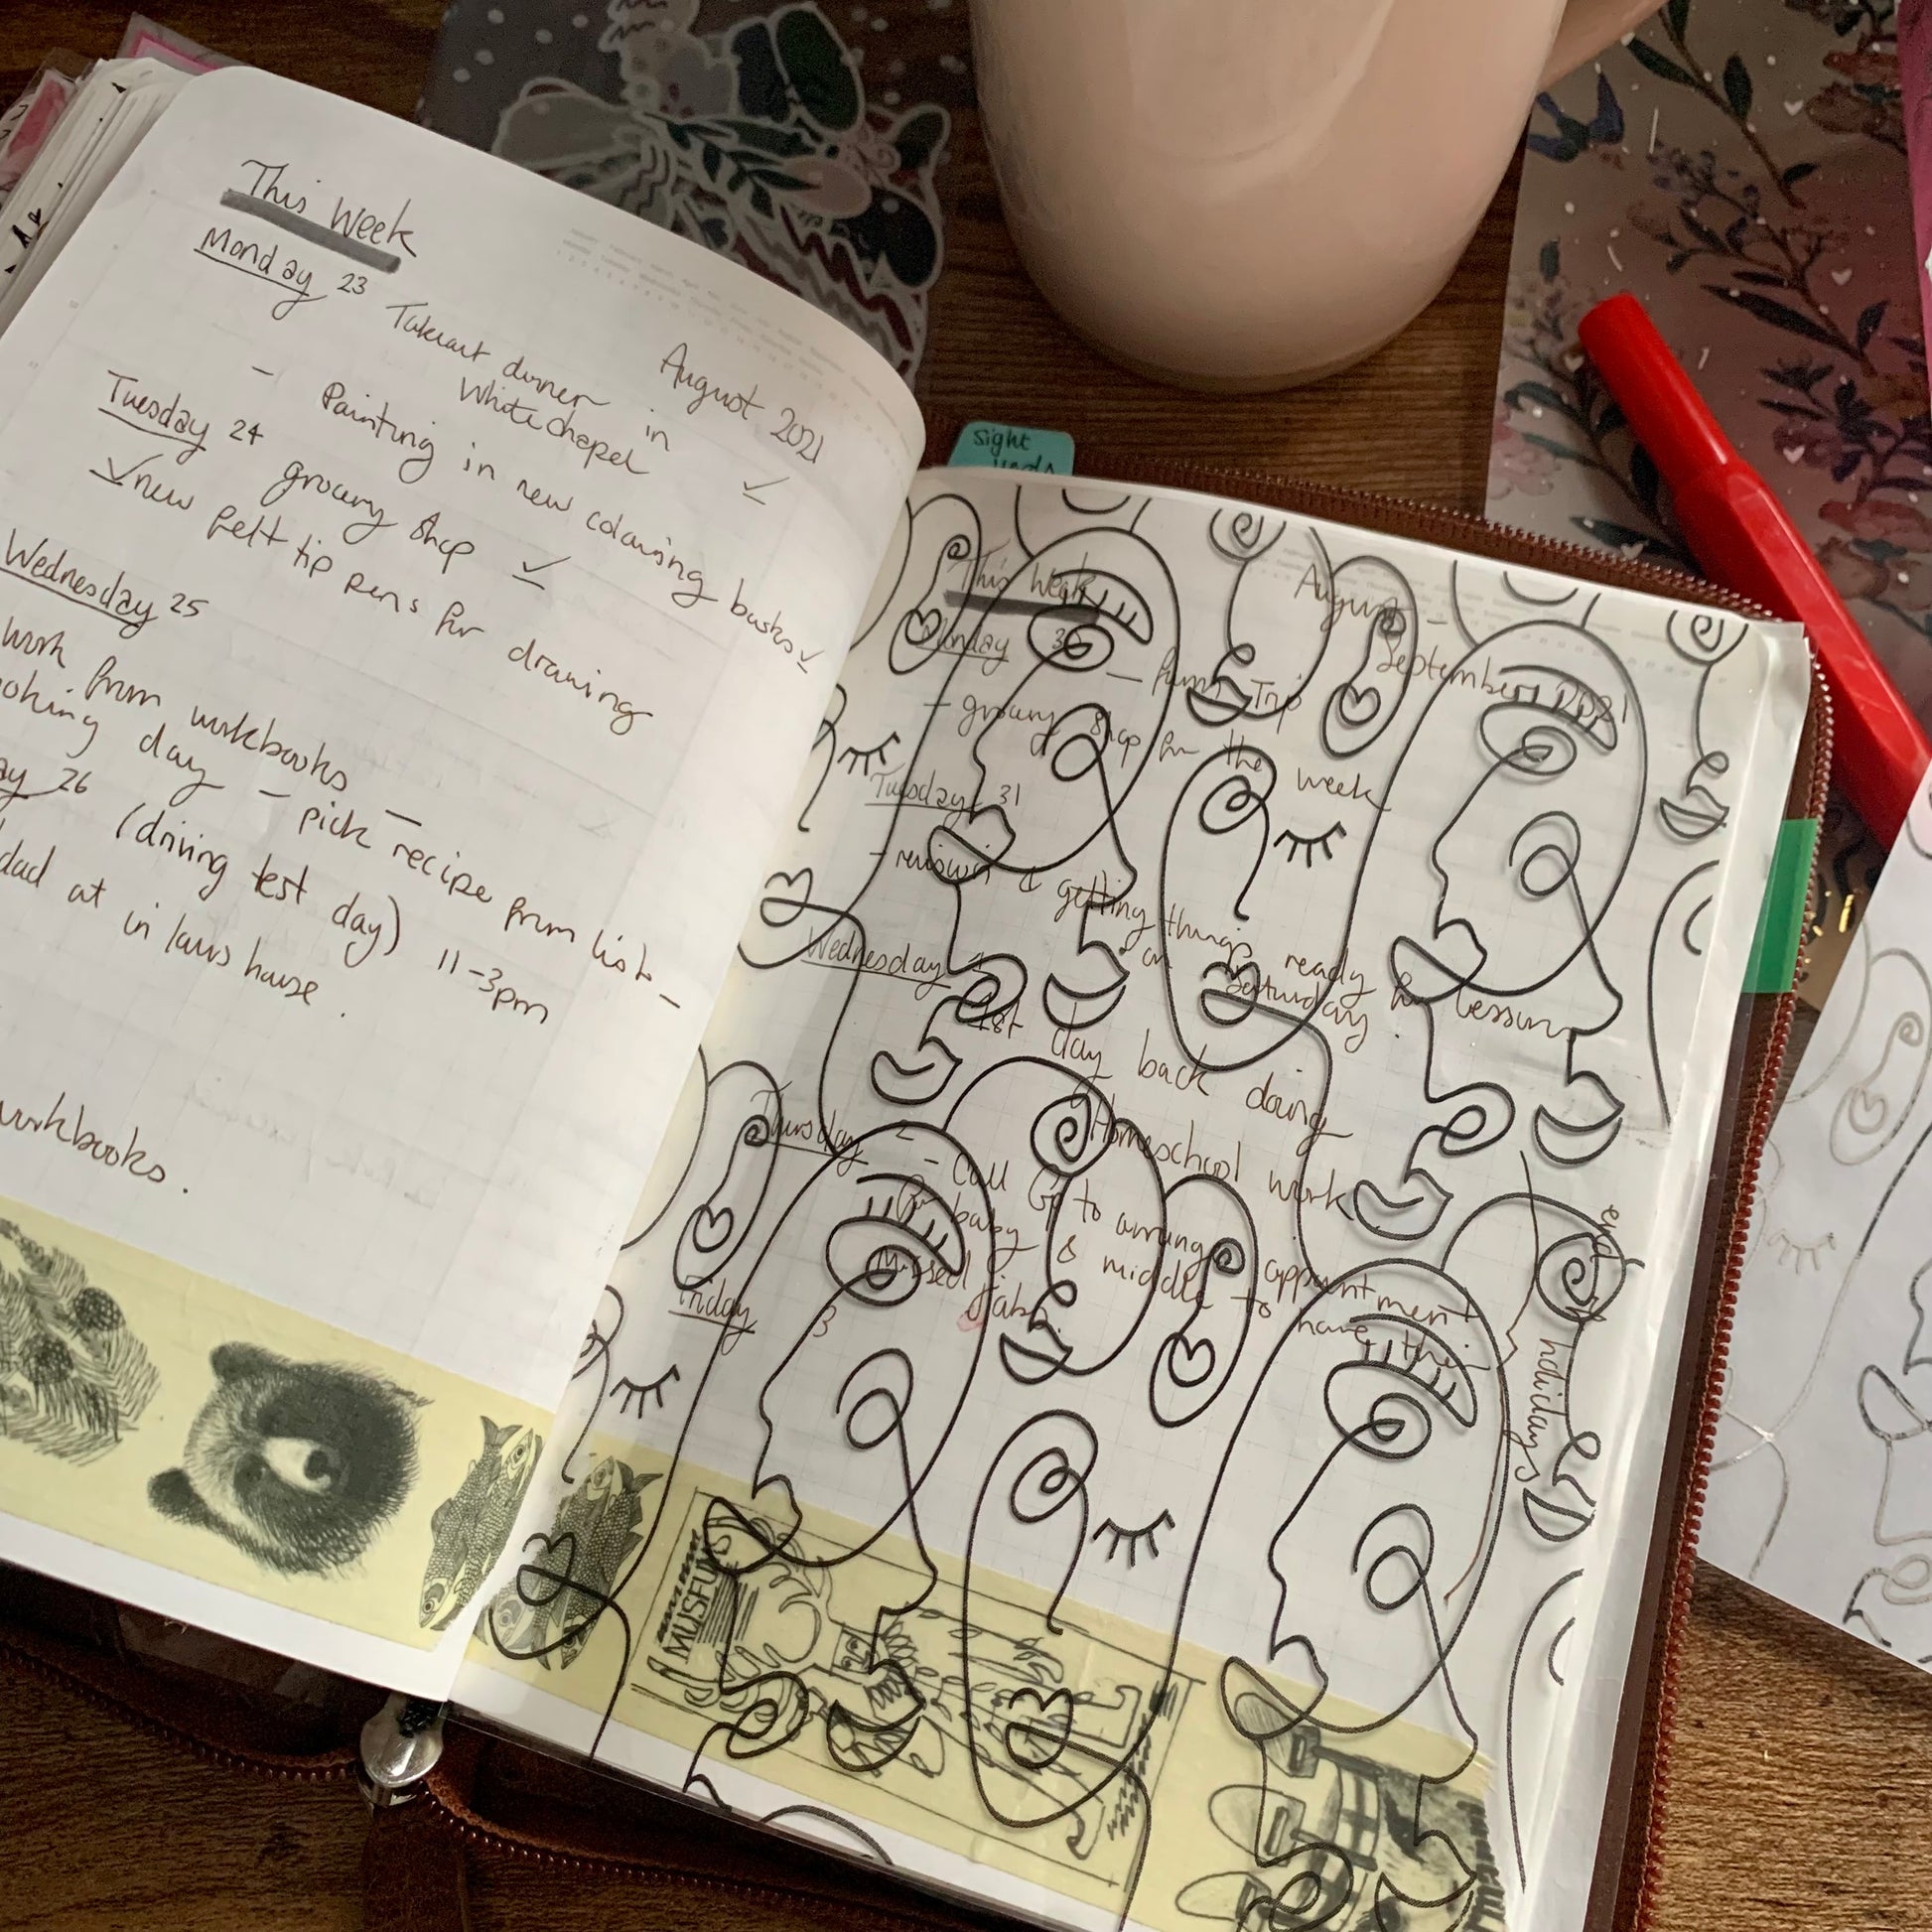 This Week
August 2021
Monday 23 Takeout dinner in
Whitechapel
- Painting in new colouring books
Tuesday 24 grocery shop
new felt tip pens for drawing
Wednesday 25
work from workbooks
day - pick recipe from list -
26 (driving test day) 11-3pm
dad at in laws house.
workbooks.
sight
This Week
August -
September 2021
Monday 30
- Trip
- grocery shop for the week
Tuesday 31
- & getting things ready for lessons
on Saturday.
Wednesday 1
1st day back doing
Homeschool work
Thursday 2
- Call Gp to arrange appointment
for baby & middle to have their
missed jabs.
Friday 3
end
holidays
MUSEUMS